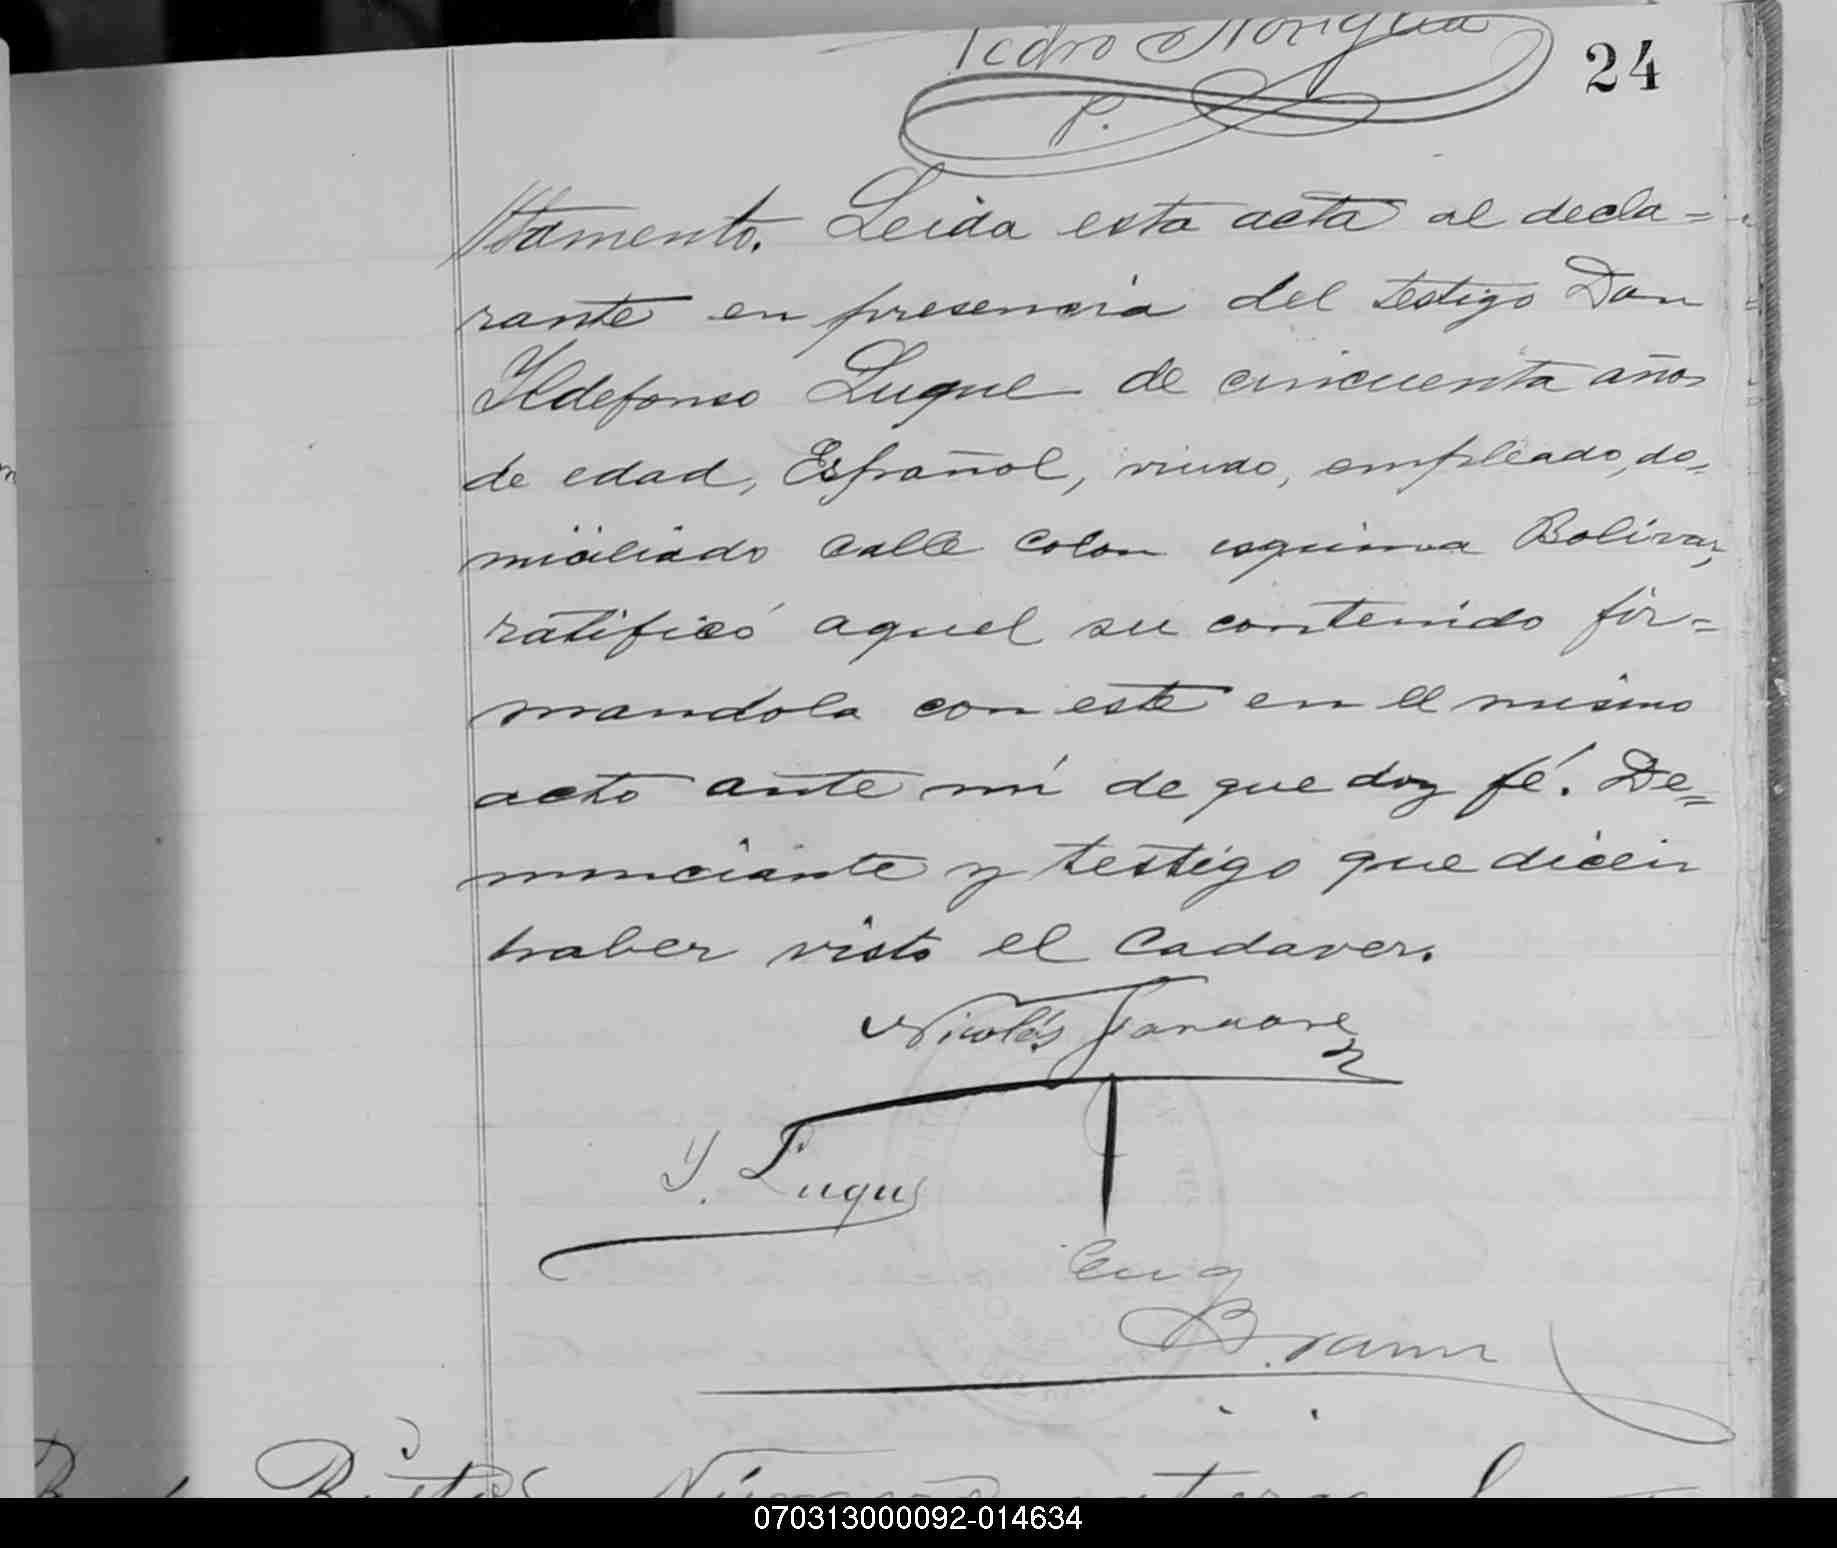 Pedro Noriega
24
P.
stamento. Leida esta acta al decla=
rante en presencia del testigo Don
Yldefonso Luque de cincuenta años
de edad, Español, viudo, empleado, do-
miciliado calle Colon esquina Bolivar,
ratificó aquel su contenido fir=
mandola con este en el mismo
acto ante mí de que doy fé. De=
nunciante y testigo que dicen
haber visto el cadaver.
Nicolás
Y. Luque
Eug
B.
070313000092-014634